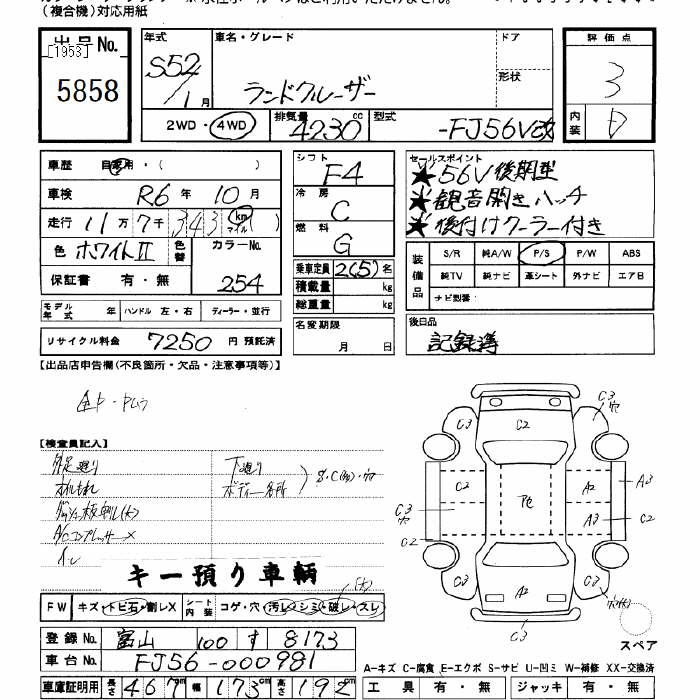 (複合機)対応用紙
出品No.
[1953]
5858
年式 車名・グレード ドア
S52/1月 ランドクルーザー 形状
2WD・4WD 排気量 4230 cc 型式 -FJ56V改
評価点
3
内装 D
車歴 自家用・( )
車検 R6年 10月
走行 11万7千343 km マイル
色 ホワイトII 色替 カラーNo. 254
保証書 有・無
モデル年式 年 ハンドル 左・右 ディーラー・並行
リサイクル料金 7250 円 預託済
シフト F4
冷房 C
燃料 G
乗車定員 2(5)名
積載量 kg
総重量 kg
名変期限
月 日
セールスポイント
★56V後期型
★観音開きハッチ
★後付けクーラー付き
装備品 S/R 純A/W P/S P/W ABS
純TV 純ナビ 革シート 外ナビ エアB
ナビ型番:
後日品
記録簿
【出品店申告欄(不良箇所・欠品・注意事項等)】
【検査員記入】
下廻り
ボディー各所
A/Cコンプレッサー×
キー預り車輌
FW キズ・トビ石・割レX シート内装 コゲ・穴・汚レ・シミ・破レ・スレ
登録No. 富山 100 す 8173
車台No. FJ56-000981
車庫証明用 長さ 467 cm 幅 173 cm 高さ 192 cm
C3 C2 C3
C2 Pe A2 A3
C3 A3 C2
C2 C2 A2
C3
スペア
A-キズ C-腐食 E-エクボ S-サビ U-凹ミ W-補修 XX-交換済
工具 有・無 ジャッキ 有・無